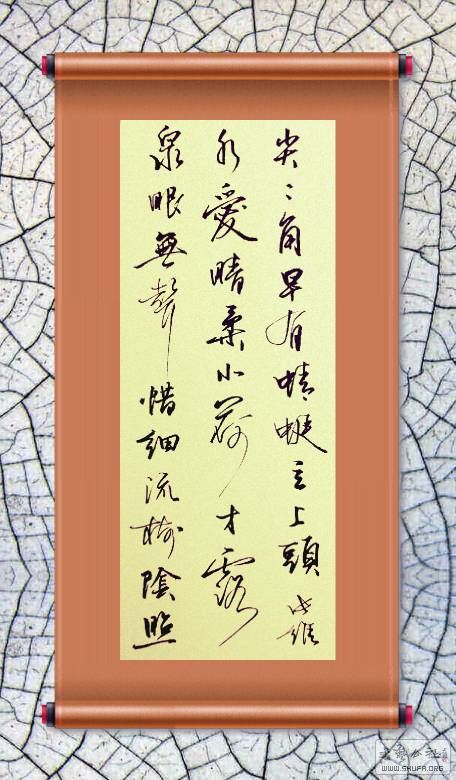 泉眼無聲惜細流樹陰照
水愛晴柔小荷才露
尖〻角早有蜻蜓立上頭
WWW.SHUFA.ORG